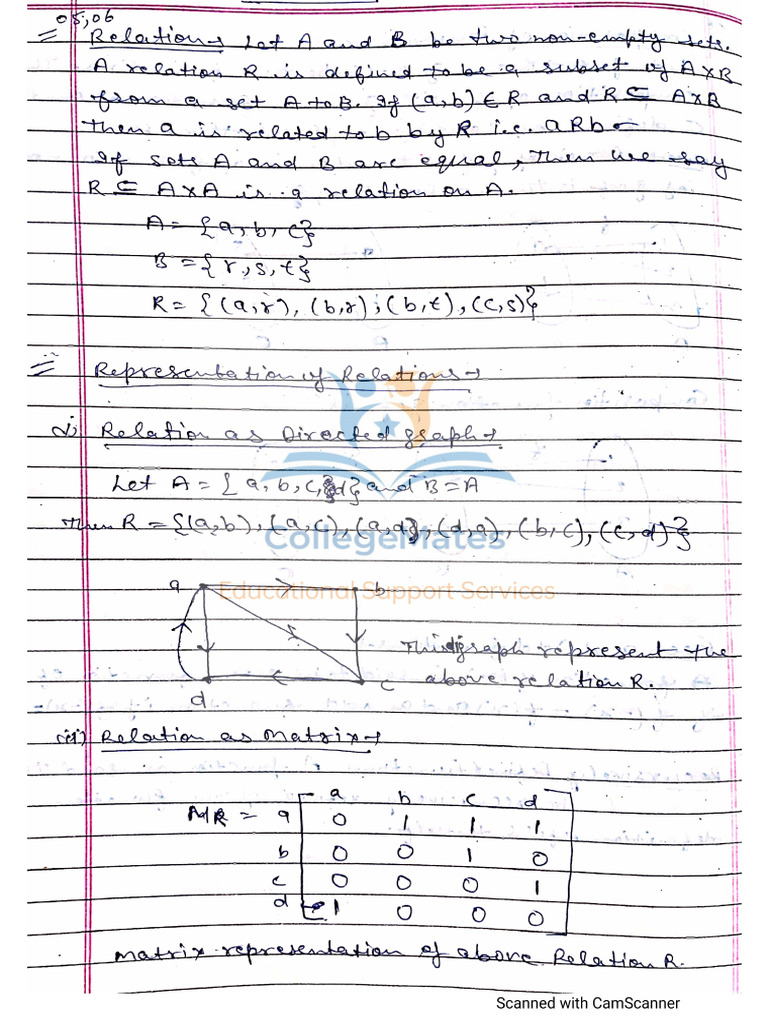 05,06
= Relation → Let A and B be two non-empty sets.
A relation R is defined to be a subset of A×B
from a set A to B. If (a,b) ∈ R and R ⊆ A×B
then a is related to b by R i.e. aRb
If sets A and B are equal, then we say
R ⊆ A×A is a relation on A.
A = {a, b, c}
B = {r, s, t}
R = {(a,r), (b,r), (b,t), (c,s)}
= Representation of Relations →
i) Relation as Directed graph →
Let A = {a, b, c, d} and B = A
Then R = {(a,b), (a,c), (a,d), (d,a), (b,c), (c,d)}
CollegeMates
Educational Support Services
a b
This graph represent the
d c above relation R.
(ii) Relation as Matrix →
a b c d
MR = a 0 1 1 1
b 0 0 1 0
c 0 0 0 1
d 1 0 0 0
Matrix representation of above Relation R.
Scanned with CamScanner